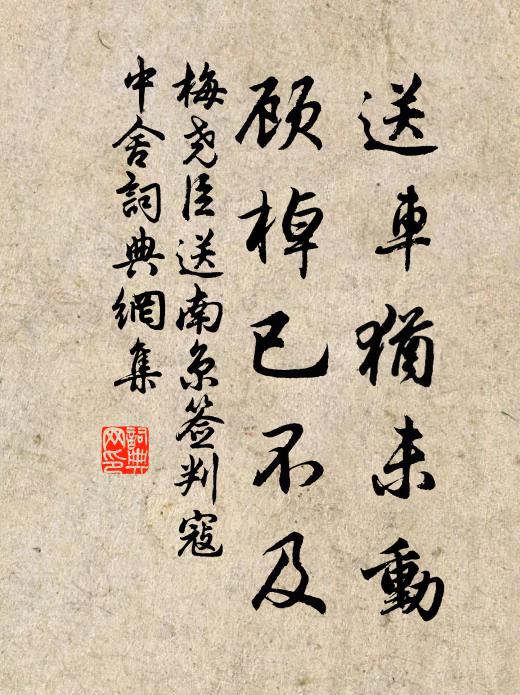 送車猶未動
顾棹已不及
梅尧臣送南京签判寇
中舍詞典網集
詞典网印